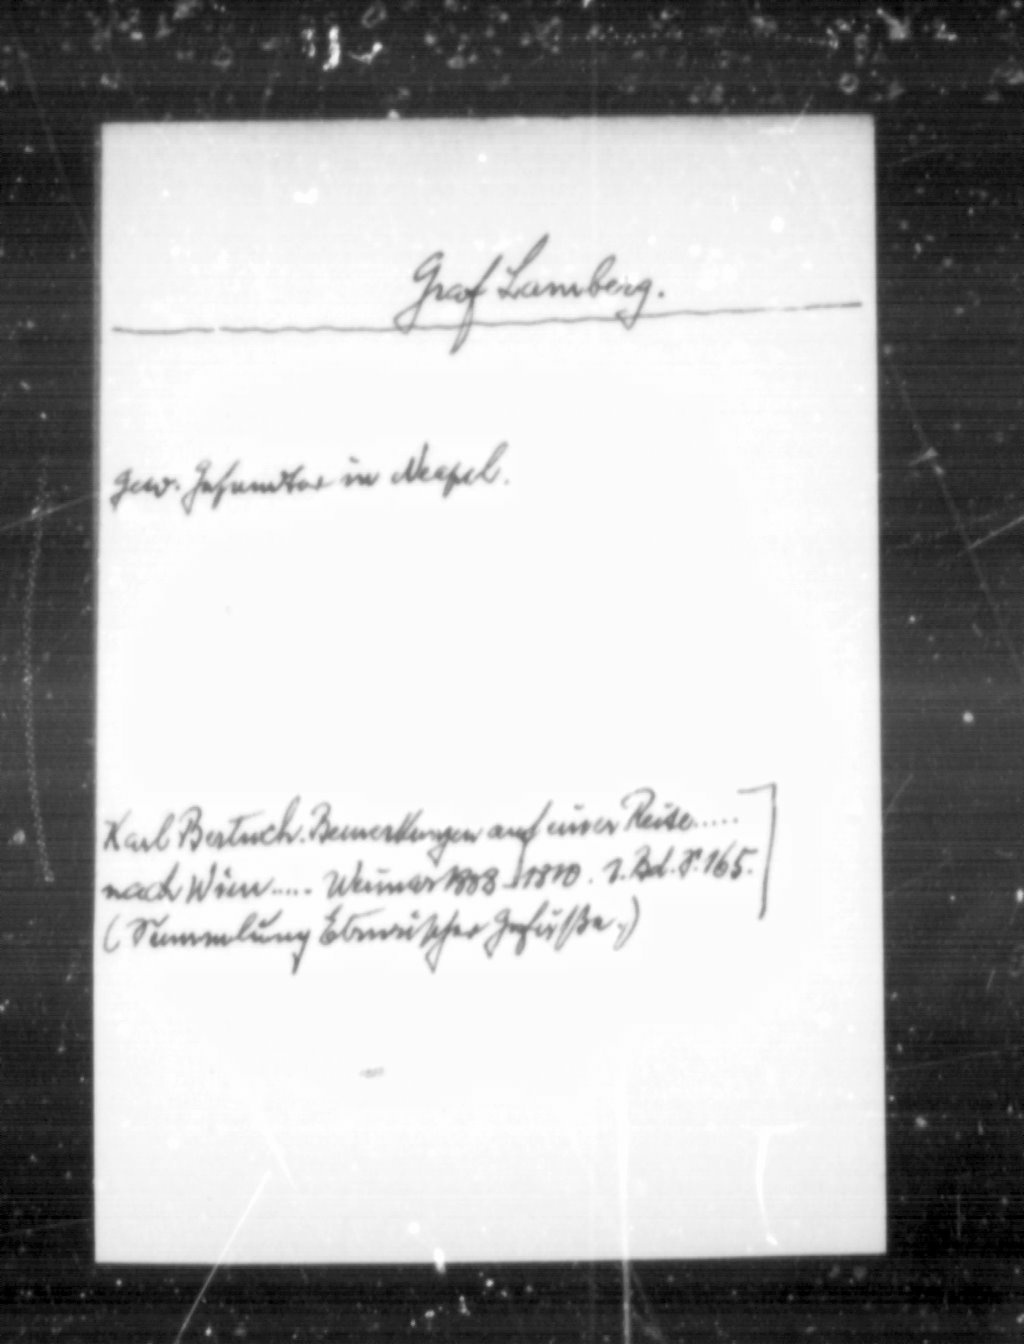 Graf Lamberg.
gew. Gesandter in Neapel.
Karl Bertuch. Bemerkungen auf einer Reise.....
nach Wien..... Weimar 1808–1810. I. Bd. S. 165.
(Sammlung Etrurischer Gefäße.)